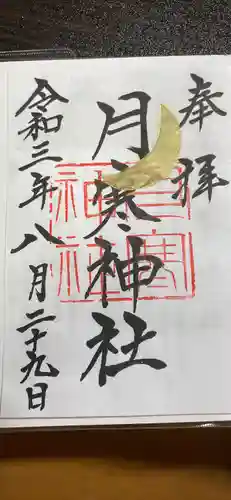 奉拝
月寒神社
令和三年八月二十九日